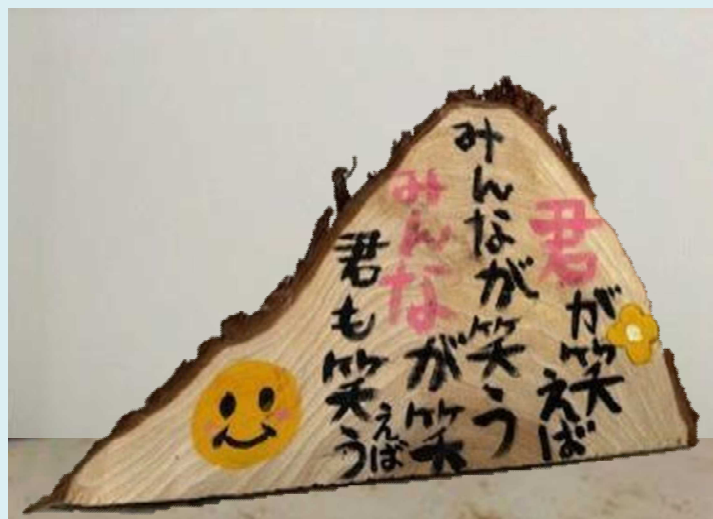 君が笑えば
みんなが笑う
みんなが笑えば
君も笑う